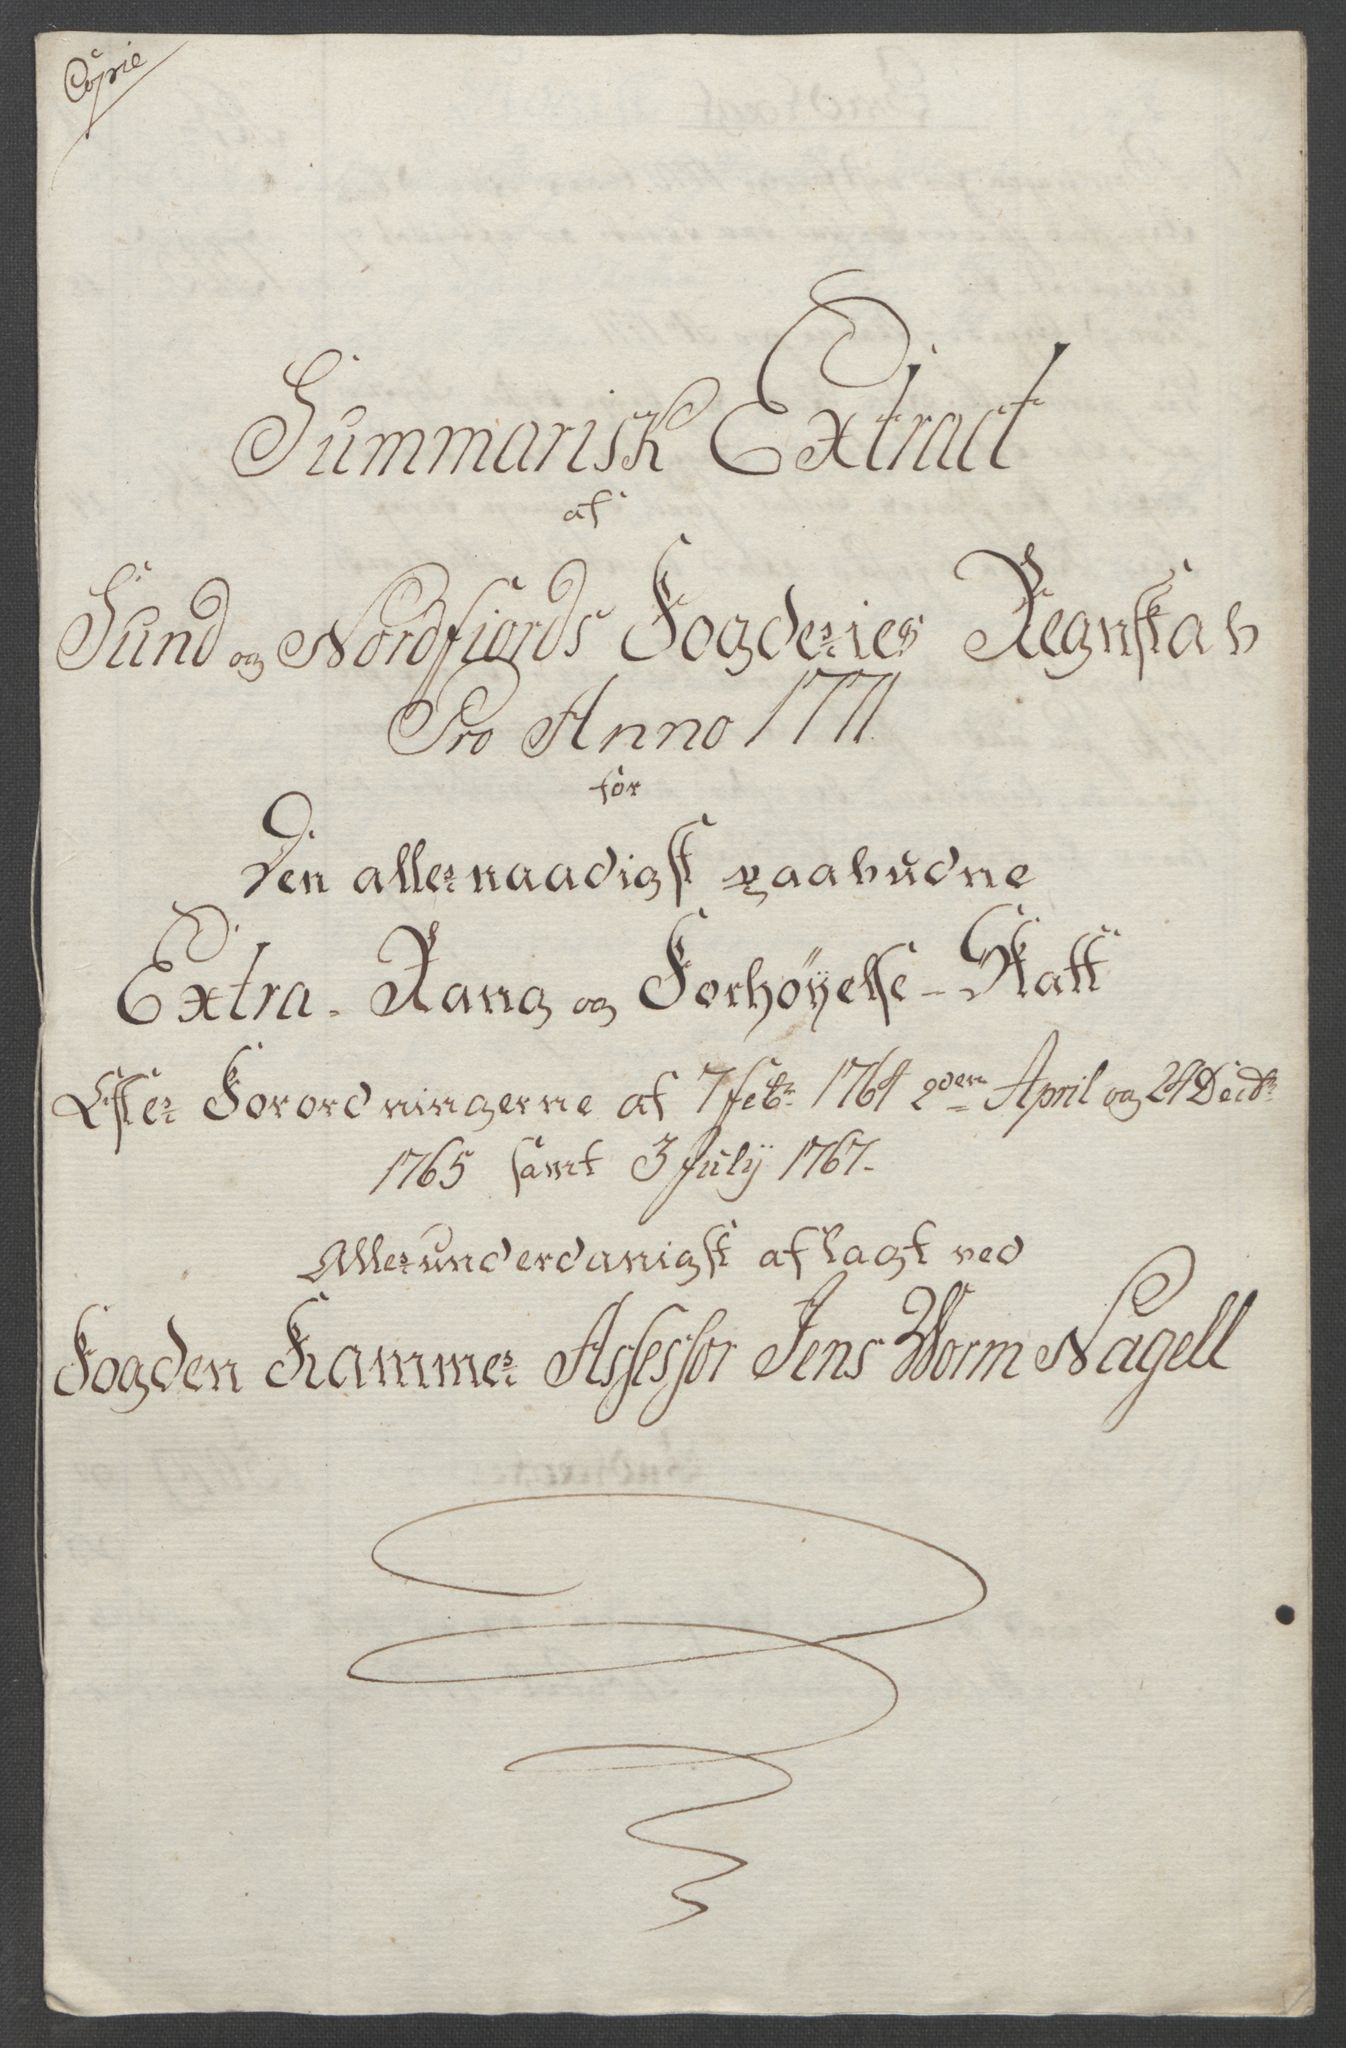 Copie
Summarisk Extract
af
Sund og Nordfiords Fogderies Regnskab
Pro Anno 1771
for
Den allernaadigst paabudne
Extra- Rang og Forhøyelse-Skatt
Efter Forordningerne af 7 febr 1764 2den April og 24 Decbr
1765 samt 3 Julÿ 1767.
Allerunderdanigst aflagt ved
Fogden Kammer Assessor Jens Worm Nagell